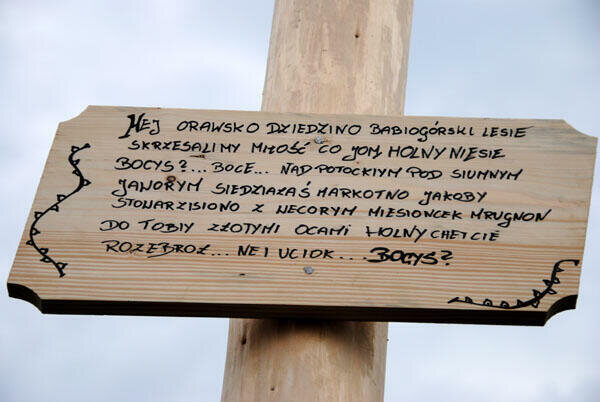 HEJ ORAWSKO DZIEDZINO BABIOGÓRSKI LESIE
SKRZESALIMY MIŁOŚĆ CO JOM HOLNY NIESIE
BOCYS?... BOCE... NAD POTOCKIYM POD SIUMNYM
JAWORYM SIEDZIAŁAŚ MARKOTNO JAKOBY
STOWARZISIONO Z WECORYM MIESIONCEK MRUGNON
DO TOBIY ZŁOTYMI OCAMI HOLNY CHEŁCIE
ROZEBROŁ... NEI UCIOK... BOCYS?